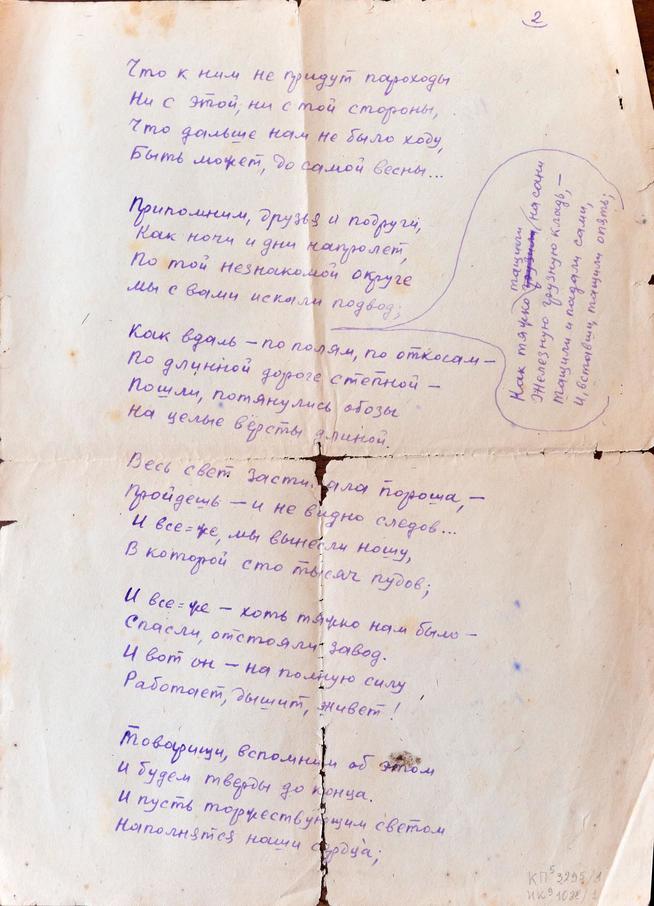 2
Что к ним не придут пароходы
Ни с этой, ни с той стороны,
Что дальше нам не было ходу,
Быть может, до самой весны...
Припомним, друзья и подруги,
Как ночи и дни напролет,
По той незнакомой округе
Мы с вами искали подвод;
Как тяжко тащили на сани
Железную грузную кладь, —
Тащили и падали сами,
И, вставши, тащили опять;
Как вдаль — по полям, по откосам —
По длинной дороге степной —
Пошли, потянулись обозы
На целые вёрсты длиной.
Весь свет застилала пороша, —
Пройдешь — и не видно следов...
И все=же, мы вынесли ношу,
В которой сто тысяч пудов;
И все=же — хоть тяжко нам было —
Спасли, отстояли завод.
И вот он — на полную силу
Работает, дышит, живет!
Товарищи, вспомним об этом
И будем тверды до конца.
И пусть торжествующим светом
Наполнятся наши сердца;
КП⁵ 3295/1